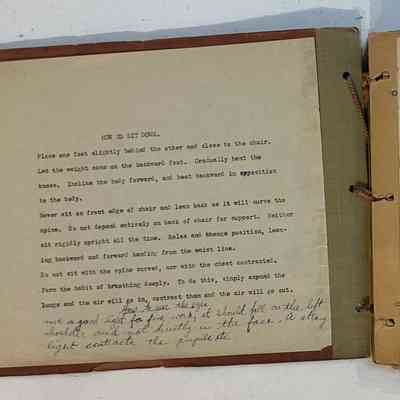 HOW TO SIT DOWN.
Place one foot slightly behind the other and close to the chair.
Let the weight come on the backward foot. Gradually bent the
knees. Incline the body forward, and head backward in opposition
to the body.
Never sit on front edge of chair and lean back as it will curve the
spine. Do not depend entirely on back of chair for support. Neither
sit rigidly upright all the time. Relax and change position, lean-
ing backward and forward bending from the waist line.
Do not sit with the spine curved, nor with the chest contracted.
Form the habit of breathing deeply. To do this, simply expand the
lungs and the air will go in, contract them and the air will go out.
How to use the eyes
use a good light for fine work, it should fall on the left
shoulder and not directly in the face. A strong
light contracts the pupils etc